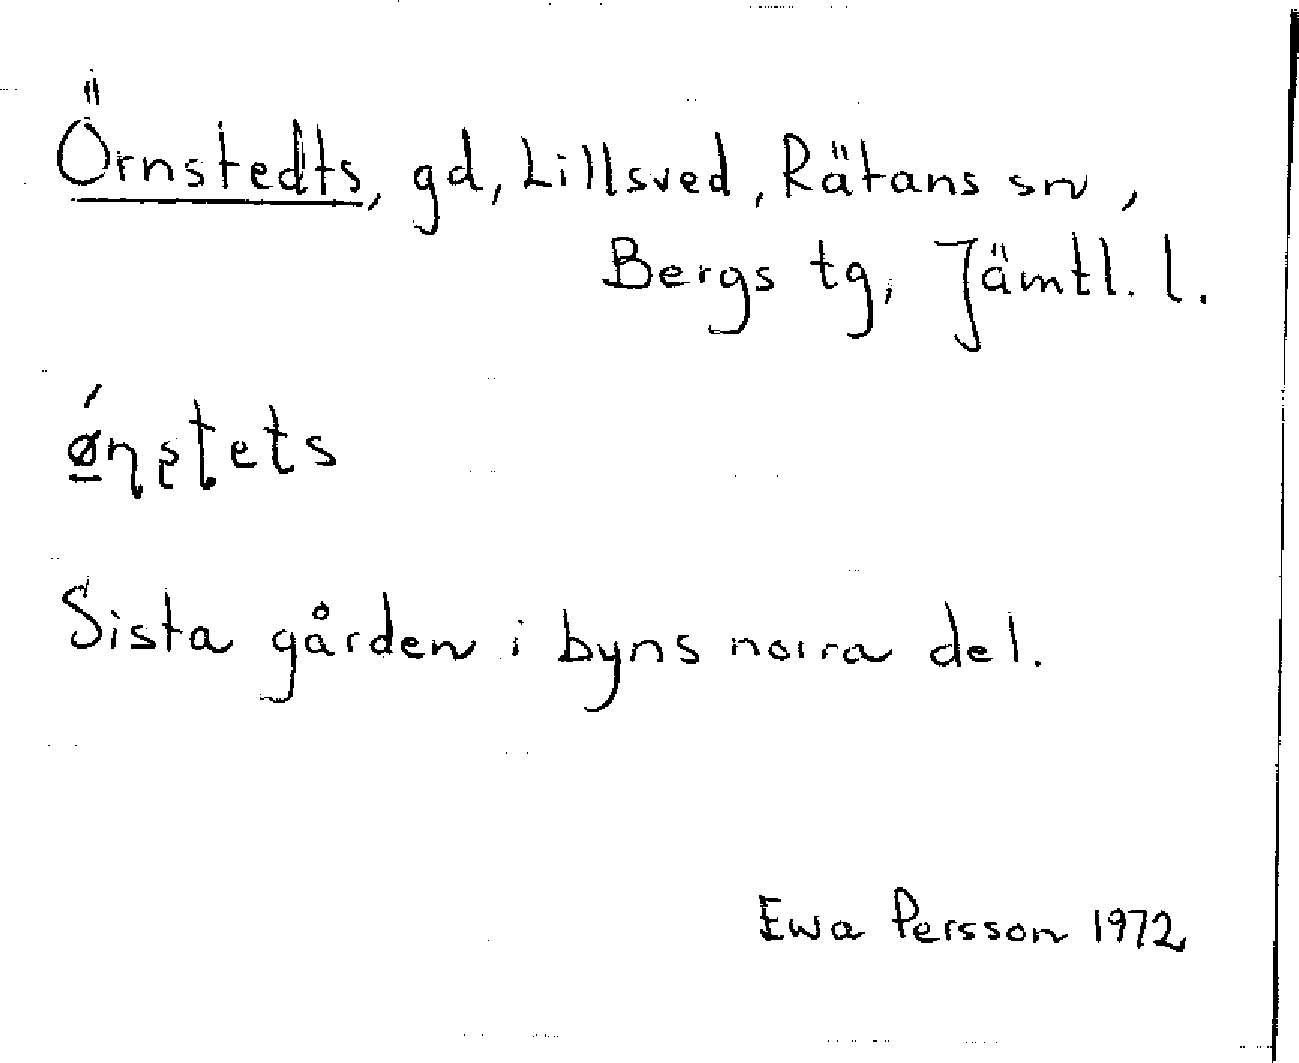 Örnstedts, gd, Lillsved, Rätans sn,
Bergs tg, Jämtl. l.
ǿ̱ɳʂʈets
Sista gården i byns norra del.
Ewa Persson 1972